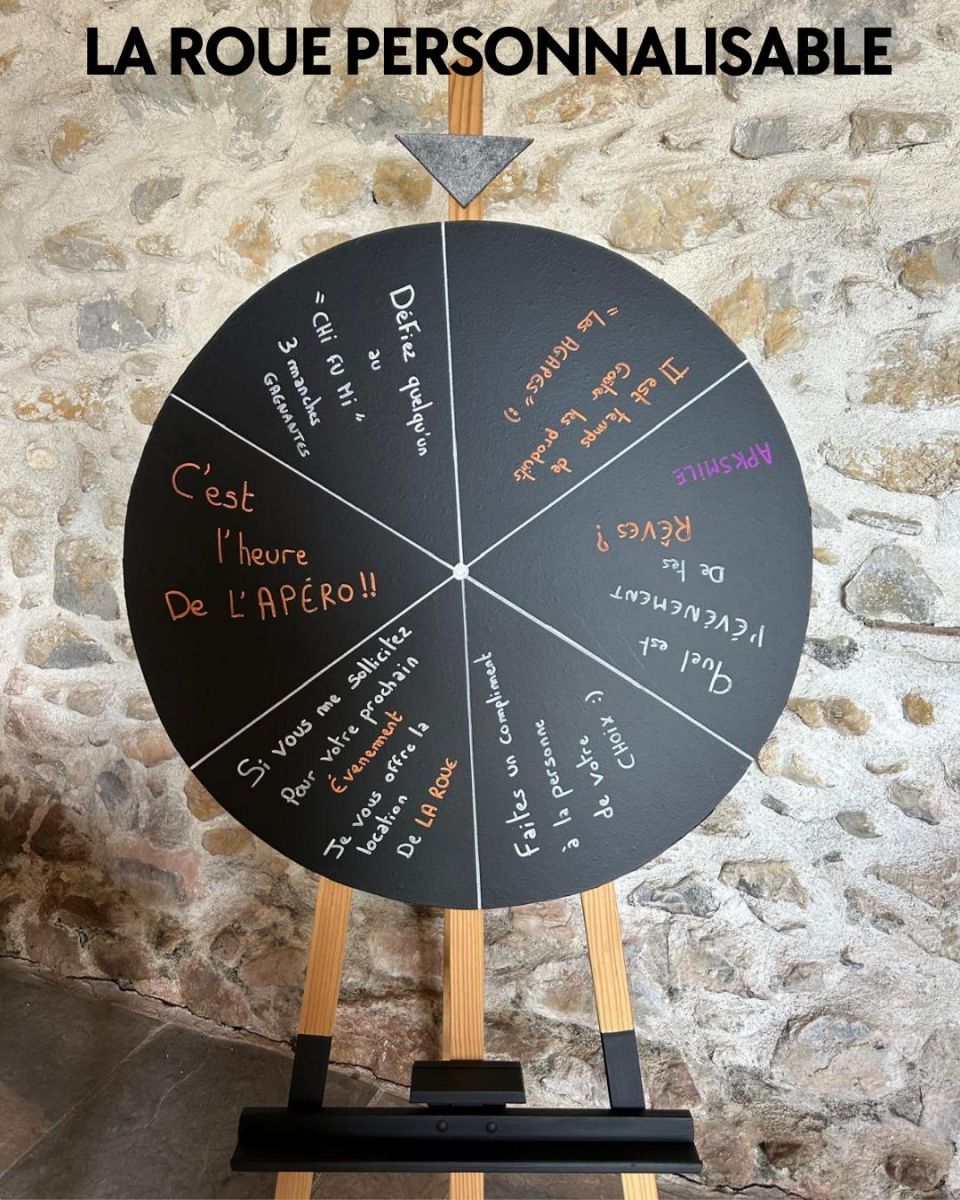 LA ROUE PERSONNALISABLE
Il est temps de
Goûter les produits
"Les AGAPES" :)
Quel est
l'ÉVÉNEMENT
De tes
RÊVES ?
APKSMILE
Faites un compliment
à la personne
de votre
CHOIX :)
Si vous me sollicitez
Pour votre prochain
Évenement
Je vous offre la
location
De LA ROUE
C'est
l'heure
De L'APÉRO!!
DéFiez quelqu'un
au
"CHi FU Mi"
3 manches
GAGNANTES